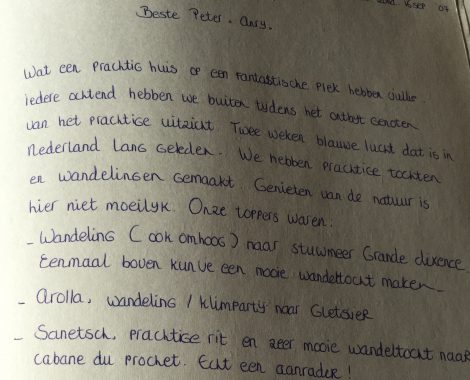 16 sep 07
Beste Peter - Anry.
Wat een prachtig huis op een fantastische plek hebben jullie.
iedere ochtend hebben we buiten tijdens het ontbijt genoten
van het prachtige uitzicht. Twee weken blauwe lucht dat is in
Nederland lang geleden. We hebben prachtige tochten
en wandelingen gemaakt. Genieten van de natuur is
hier niet moeilijk. Onze toppers waren:
- Wandeling (ook omhoog) naar stuwmeer Grande dixence
Eenmaal boven kun we een mooie wandeltocht maken -
- Arolla, wandeling / klimpartij naar Gletsjer
- Sanetsch, prachtige rit en zeer mooie wandeltocht naar
cabane du prochet. Echt een aanrader!